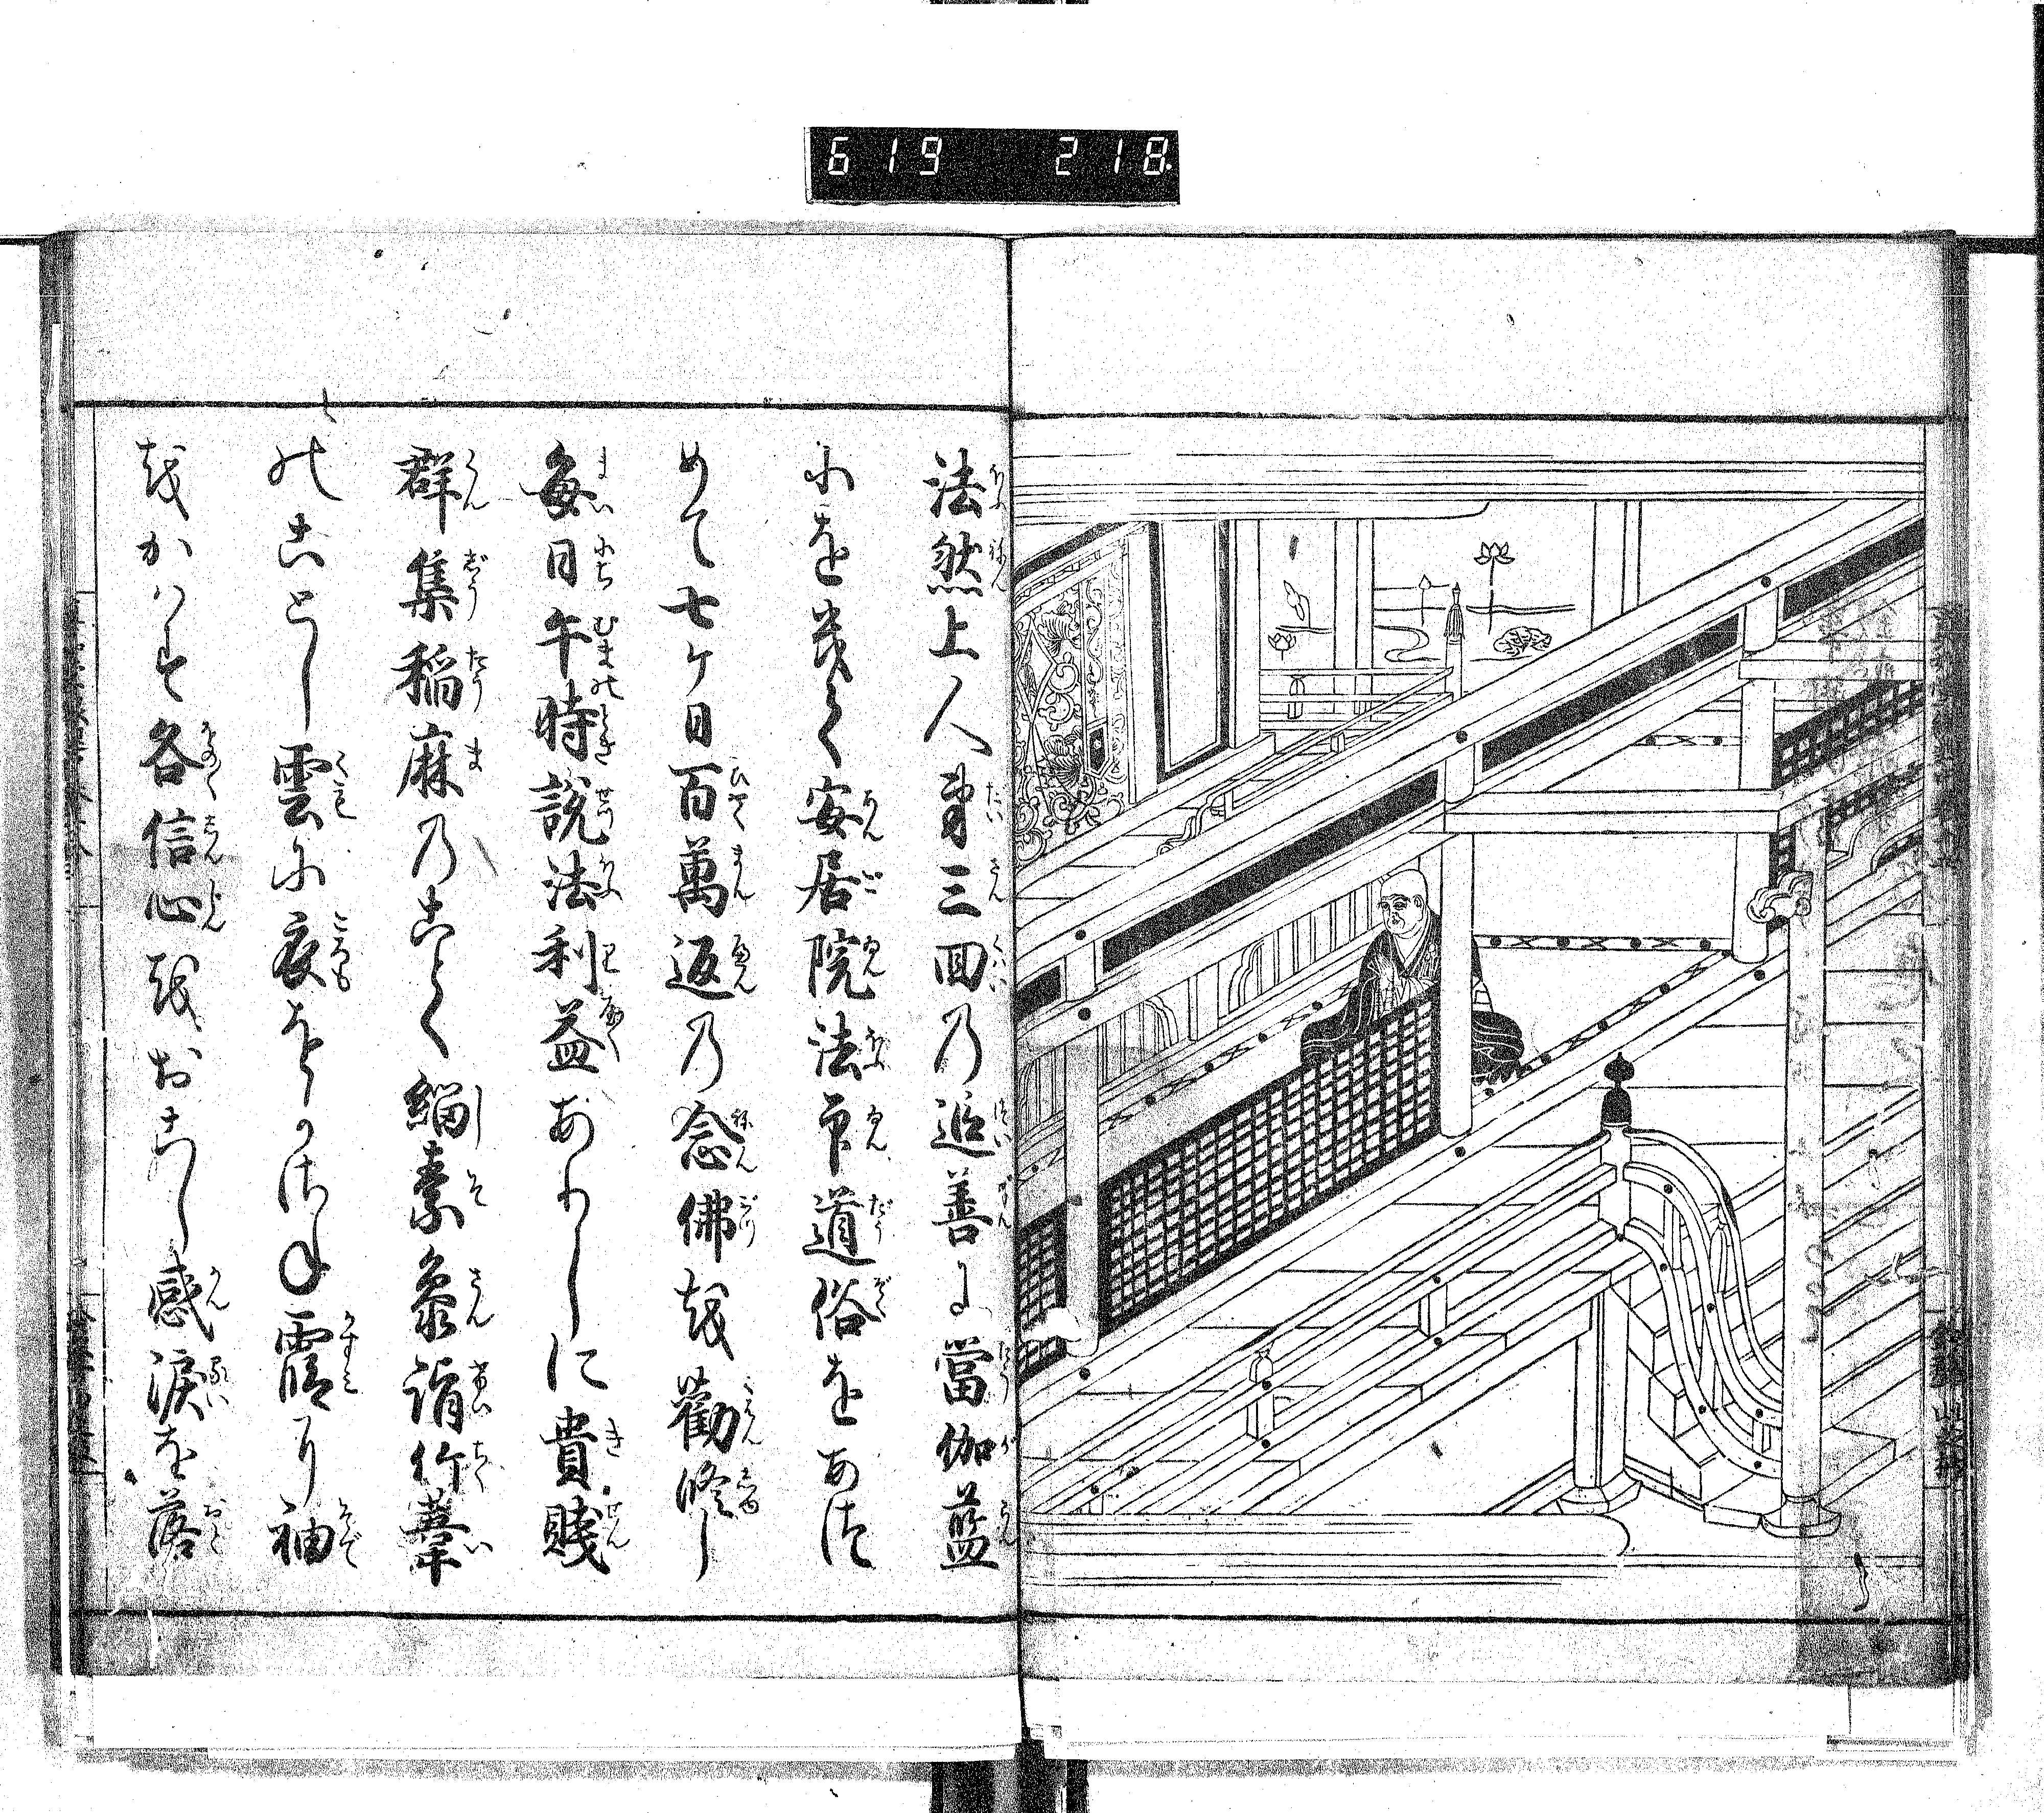 619 218
法然上人第三回乃追善に當伽藍
にをゐて安居院法印道俗をあつ
めて七ケ日百萬返乃念佛越勸修し
毎日午時説法利益ありしに貴賤
群集稲麻乃ことく緇素叅詣竹葦
のことし雲に衣をかけ霞に袖
越かはす各信心越おこし感涙を落